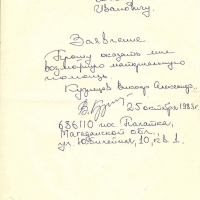 Ивановичу.
Заявление
Прошу оказать мне
возможную материальную
помощь.
Кузнецов Виктор Александр.
25 октября 1983 г.
686110 пос. Палатка,
Магаданской обл.
ул. Юбилейная, 10, кв. 1.